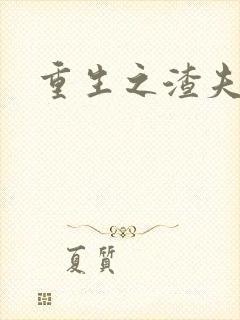 重生之渣夫
夏質